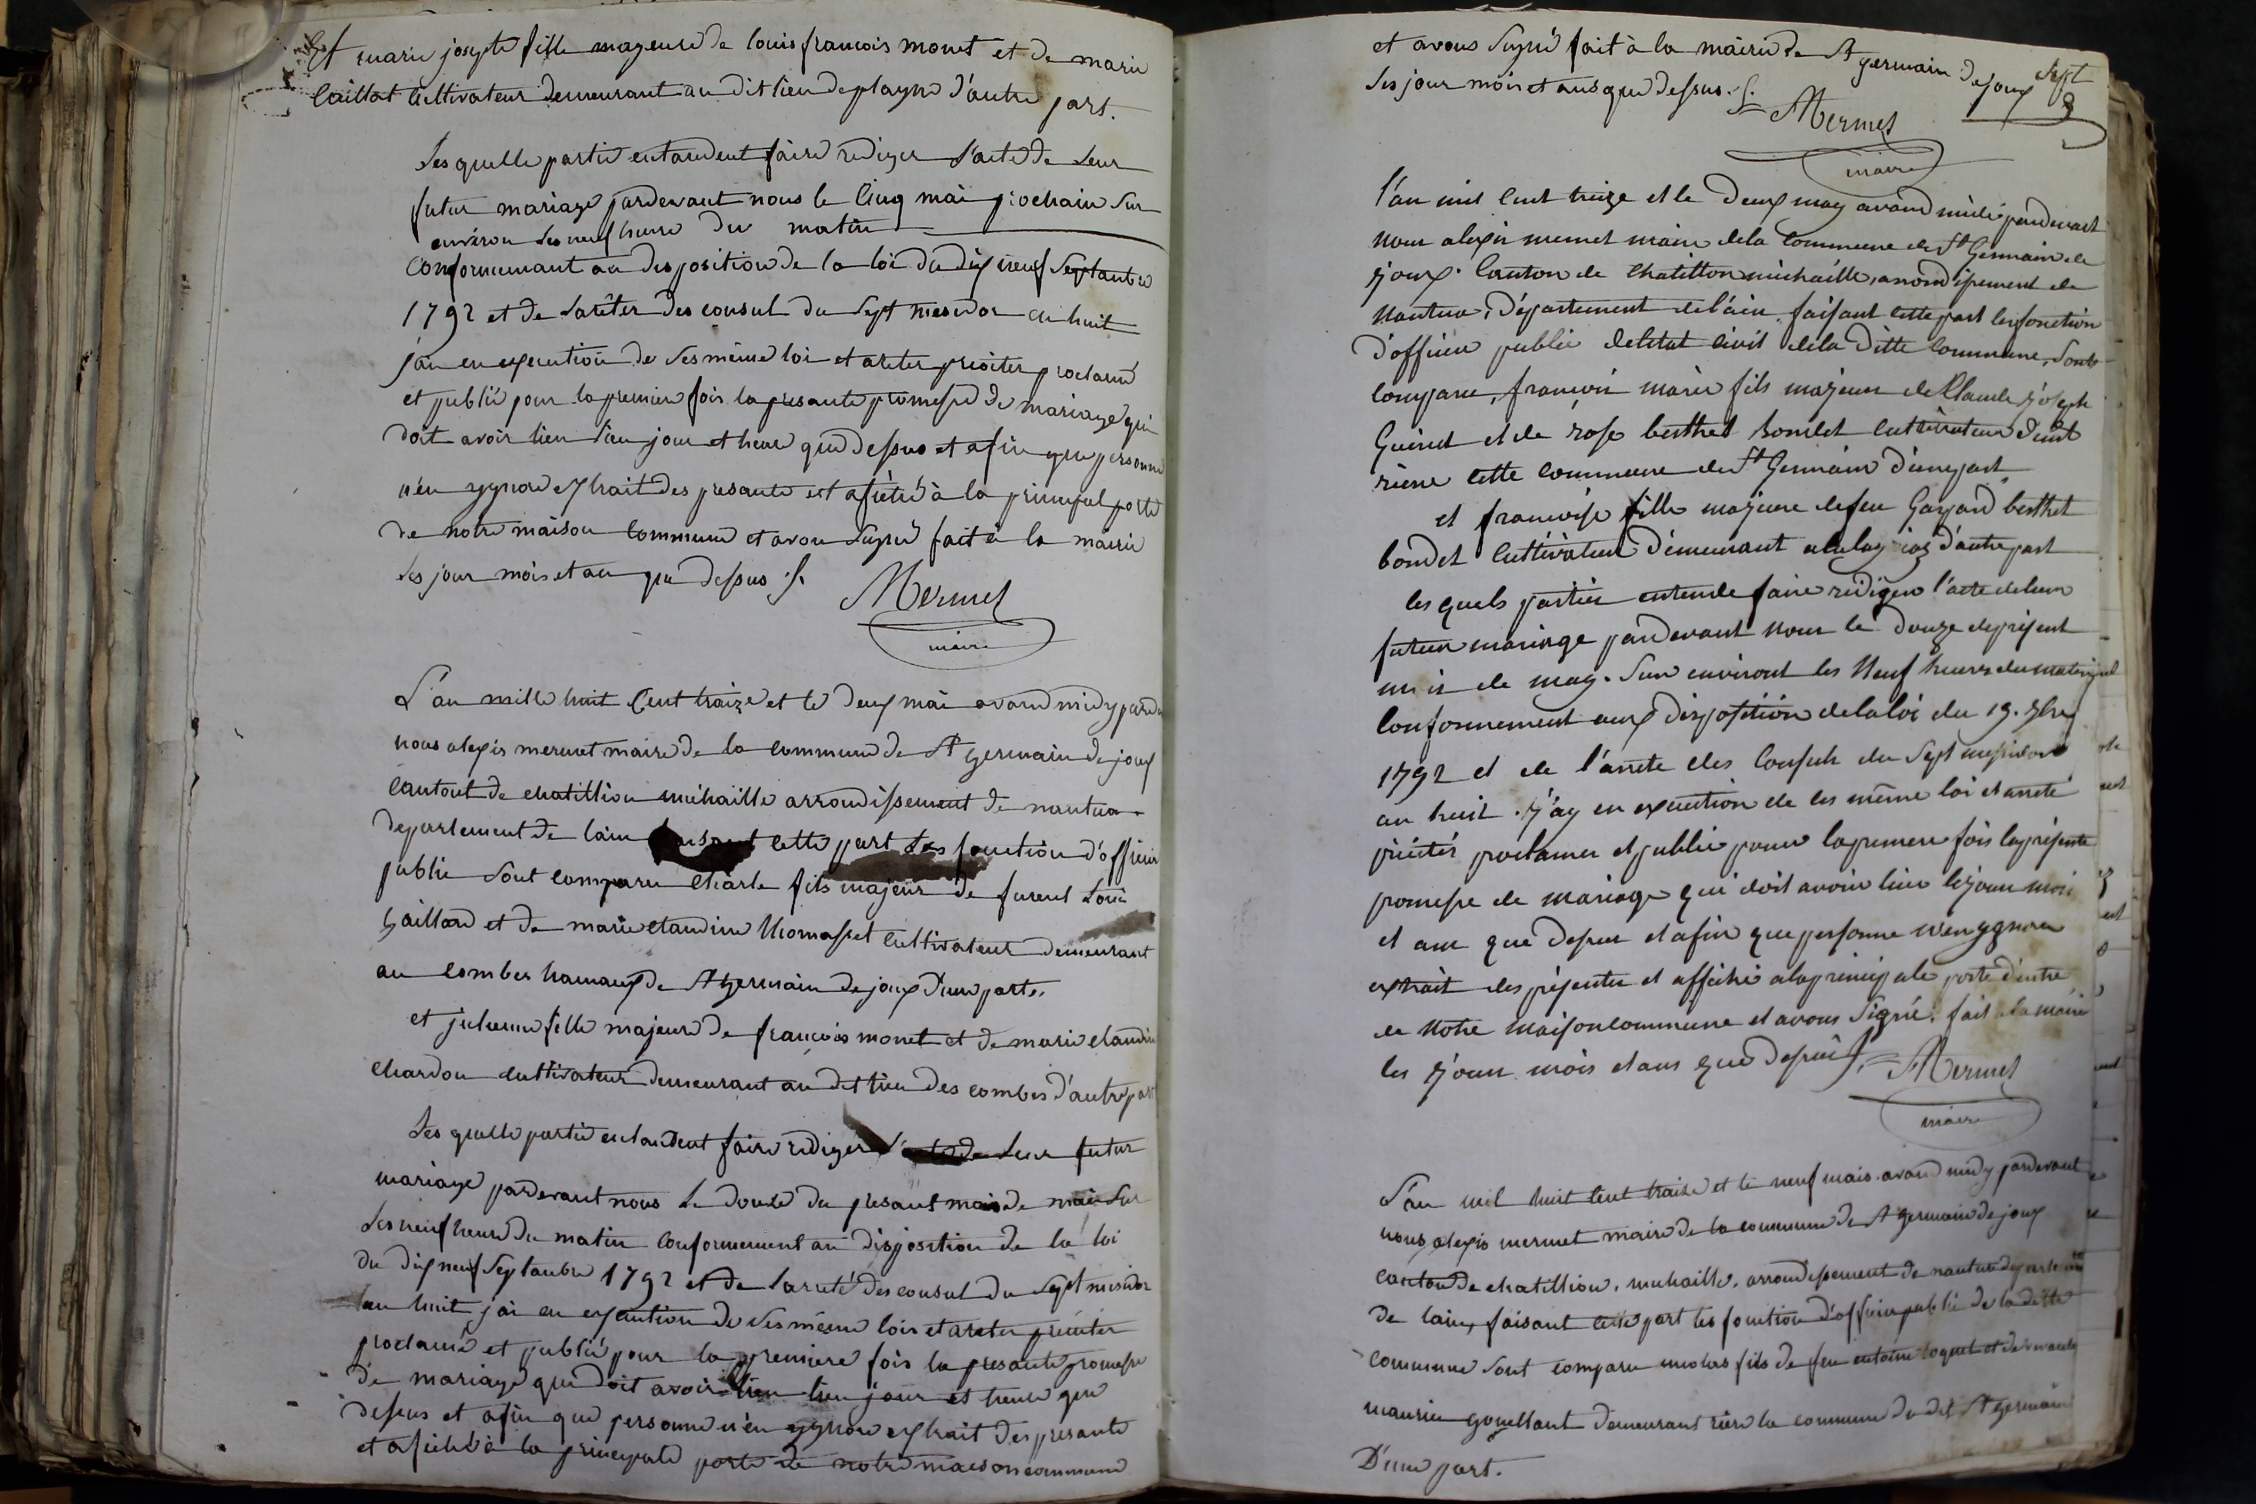 Et marie josepte fille mageure de louis francois monet et de marie
Caillat Cultivateur demeurant au dit lieu de playne d'autre part.
Les quelle partie entandent faire rediger l'acte de Leur
futur mariage pardevant nous le Cinq mai prochain Sur
environ les neuf heure du matin
conformemant au disposition de la loi du dix neuf Septanbre
1792 et de l'arêter des consul du Sept mesidor an huit
j'ai en execution de Ses même loi et areter preciter proclamé
et publié pour la premier fois la presante promesse de mariage qui
doit avoir lieu lieu jour et heure que dessus et afin que personne
n'en ygnore extrait des presante est afiché à la principal porte
de notre maison Commune et avon Signé fait à la mairie
les jour mois et an que dessus ./.
Mermet
maire
L'an mille huit Cent traize et le deux mai avand midy parde
nous alexis mermet maire de la commune de St germain de joux
Cantont de chatillion michaille arrondissement de nantua
departement de lain faisant cette part Les fonction d'officier
publie Sont comparu Charle fils majeur de furent Louis
Gaillard et de marie claudine thomasset Cultivateur demeurant
au Combes hamaux de St germain de joux d'une part,
et julienne fille majeure de francois monet et de marie claudine
Chardon cultivateur demeurant au dit lieu des combes d'autre part
Les quelle partie entandent faire rediger l'acte de Leur futur
mariage pardevant nous Le douze du presant mois de mai Sur
Les neuf heure du matin Conformement au disposition de la loi
du dix neuf Septanbre 1792 et de l'arreté des consul du Sept mesidor
l'an huit j'ai en execution de Ses même lois et areter preciter
proclamé et publié pour la premiere fois la presante promesse
de mariage que doit avoir lieu lieu jour et heure que
dessus et afin que personne n'en ygnore extrait des presante
et afiché à la principale porte de notre maison commune
et avons Signé fait à la mairie de St germain de joux
les jour mois et ans que dessus ./.
Sept
Mermet
maire
l'an mil huit cent treize et le deux may avand midi pardevant
nous alexis mermet maire de la Commune de St Germain de
joux. Canton de Chatillon michaille, arrondissement de
Nantua, Département de l'ain, faisant cette part les fonction
d'officier public de l'etat civil de la ditte Commune, Sont
Comparu, francois marie fils majeur de Claude joseph
Guinet et de rose berthet bondet cultivateur d'emt
rière cette commune de St Germain d'une part
et francoise fille majeure de feu Gaspard berthet
bondet Cultivateur d'emeurant d'autre part
les quels parties entende faire rediger l'acte de leur
futur mariage pardevant nous le douze du présent
mois de may. Sur environt les Neuf heures du matin
Conformement aux disposition de la loi du 19. 7bre
1792 et de l'arrete des Consuls du Sept messidor
an huit. j'ay en execution de ces même loi et arreté
précités proclamer et publié pour la premiere fois la présente
promesse de mariage qui doit avoir lieu les jour mois
et ans que dessus et afin que personne n'en ygnore
extrait des présentes et affiché a la principale porte d'entré
de Notre maison commune et avons Signé. fait a la mairie
les jour mois et ans que dessus ./.
Mermet
maire
L'an mil huit Cent traize et le neuf mais avand midy pardevant
nous alexis mermet maire de la commune de St germain de joux
canton de chatillion, michaille, arrondissement de nantua departement
de lain, faisant cette part les fonction d'officier publié de la ditte
commune Sont comparu nicolas fils de feu antoine
maurier gouillant demeurant rière la commune du dit St germain
D'une part.